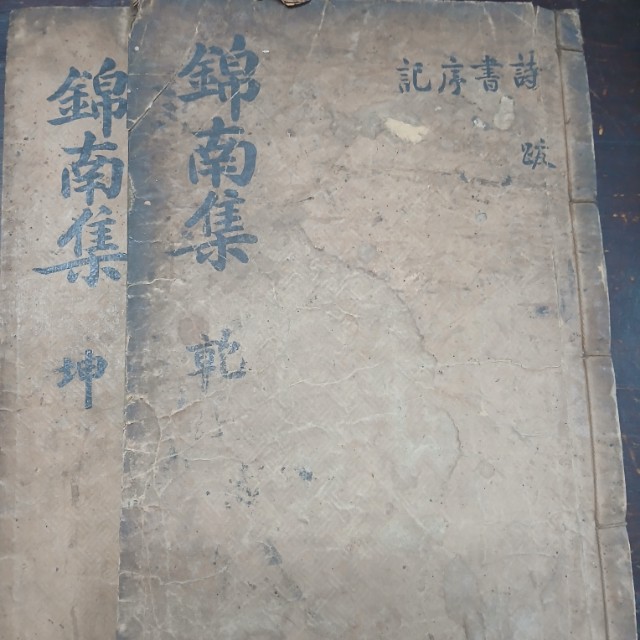 詩書序記
跋
錦南集 乾
錦南集 坤